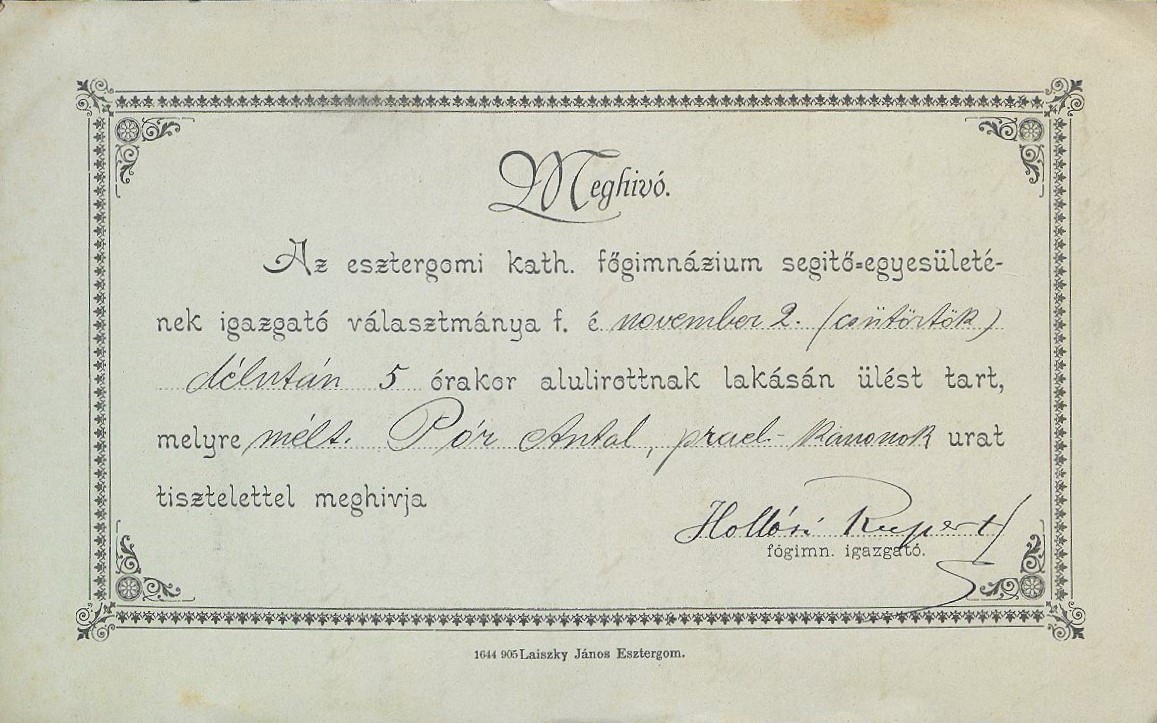 Meghivó.
Az esztergomi kath. főgimnázium segitő=egyesületé-
nek igazgató választmánya f. é. november 2. (csütörtök)
délután 5 órakor alulirottnak lakásán ülést tart,
melyre mélt. Pór Antal, prael.-kanonok urat
tisztelettel meghivja
Hollósi Rupert
főgimn. igazgató.
1644 905 Laiszky János Esztergom.